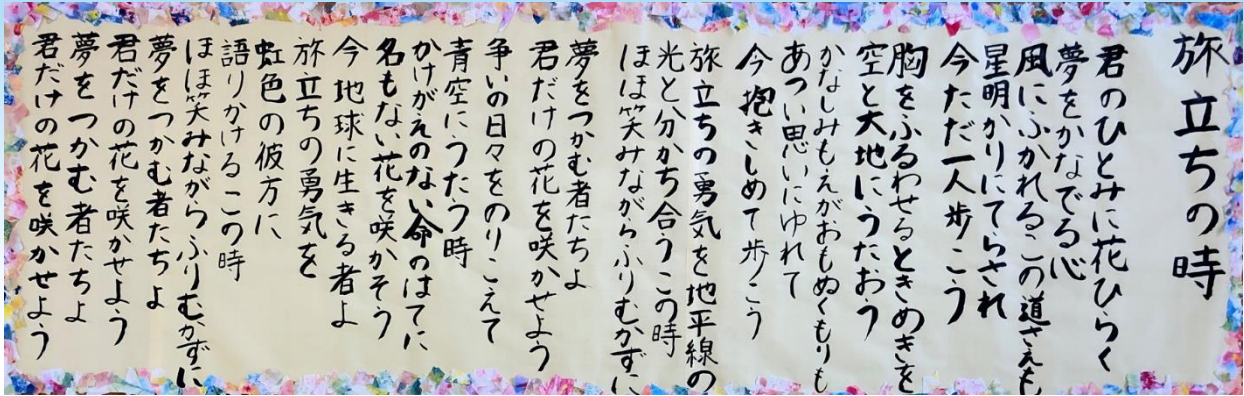 旅立ちの時
君のひとみに花ひらく
夢をかなでる心
風にふかれるこの道さえも
星明かりにてらされ
今ただ一人歩こう
胸をふるわせるときめきを
空と大地にうたおう
かなしみもえがおもぬくもりも
あつい思いにゆれて
今抱きしめて歩こう
旅立ちの勇気を地平線の
光と分かち合うこの時
ほほ笑みながらふりむかずに
夢をつかむ者たちよ
君だけの花を咲かせよう
争いの日々をのりこえて
青空にうたう時
かけがえのない命のはてに
名もない花を咲かそう
今地球に生きる者よ
旅立ちの勇気を
虹色の彼方に
語りかけるこの時
ほほ笑みながらふりむかずに
夢をつかむ者たちよ
君だけの花を咲かせよう
夢をつかむ者たちよ
君だけの花を咲かせよう